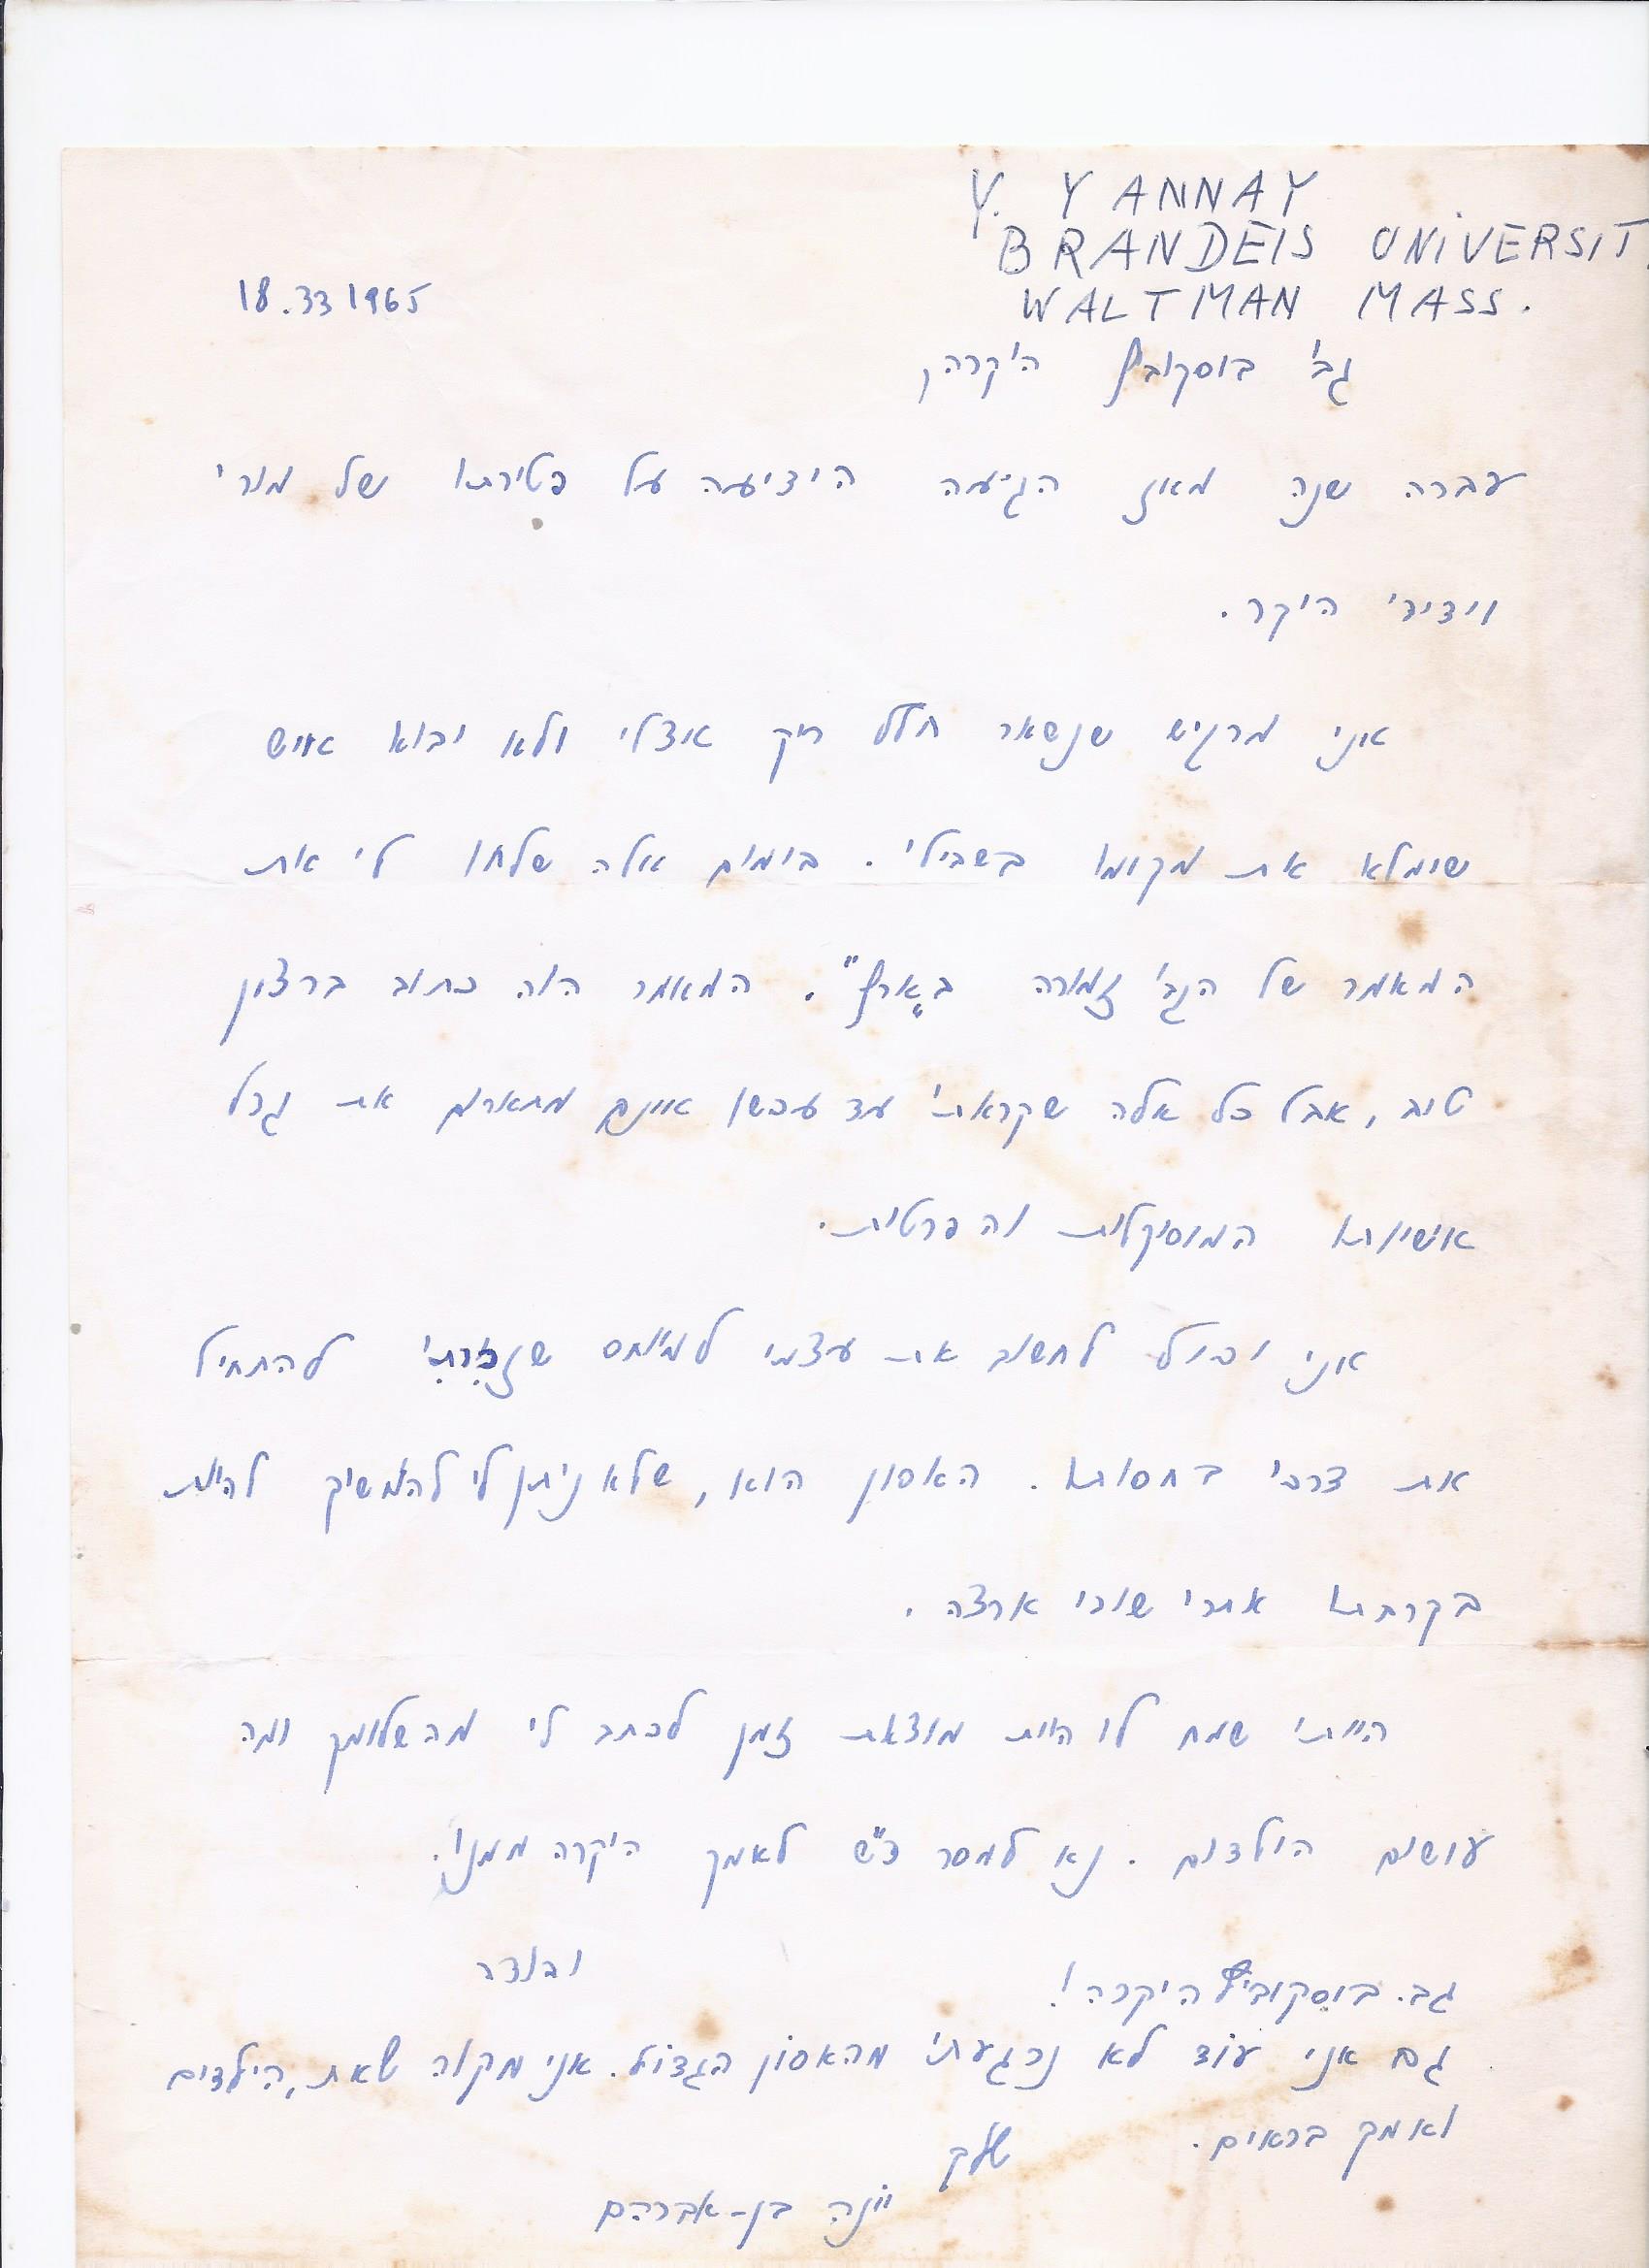 Y. YANNAY
BRANDEIS UNIVERSIT
WALTMAN MASS.
18.33 1965
גב' בוסקוביץ היקרה,
עברה שנה מאז הגיעה הידיעה על פטירתו של מורי
וידידי היקר.
אני מרגיש שנשאר חלל ריק אצלי ולא יבוא איש
שימלא את מקומו בשבילי. בימים אלה שלחו לי את
המאמר של הגב' זמורה ב"הארץ". המאמר היה כתוב ברצון
טוב, אבל כל אלה שקראתי עד עכשו אינם מתארים את גודל
אישיותו המוסיקלית והפרטית.
אני יכול לחשוב את עצמי למיוחס שזכיתי להתחיל
את דרכי בחסותו. האסון הוא, שלא ניתן לי להמשיך להיות
בקרבתו אחרי שובי ארצה.
הייתי שמח לו היית מוצאת זמן לכתב לי מה שלומך ומה
עושים הילדים. נא למסר ד"ש לאמך היקרה ממני.
יהודה
גב. בוסקוביץ היקרה!
גם אני עוד לא נרגעתי מהאסון הגדול. אני מקוה שאת, הילדים
ואמך בראים.
שלך
יונה בן-אברהם